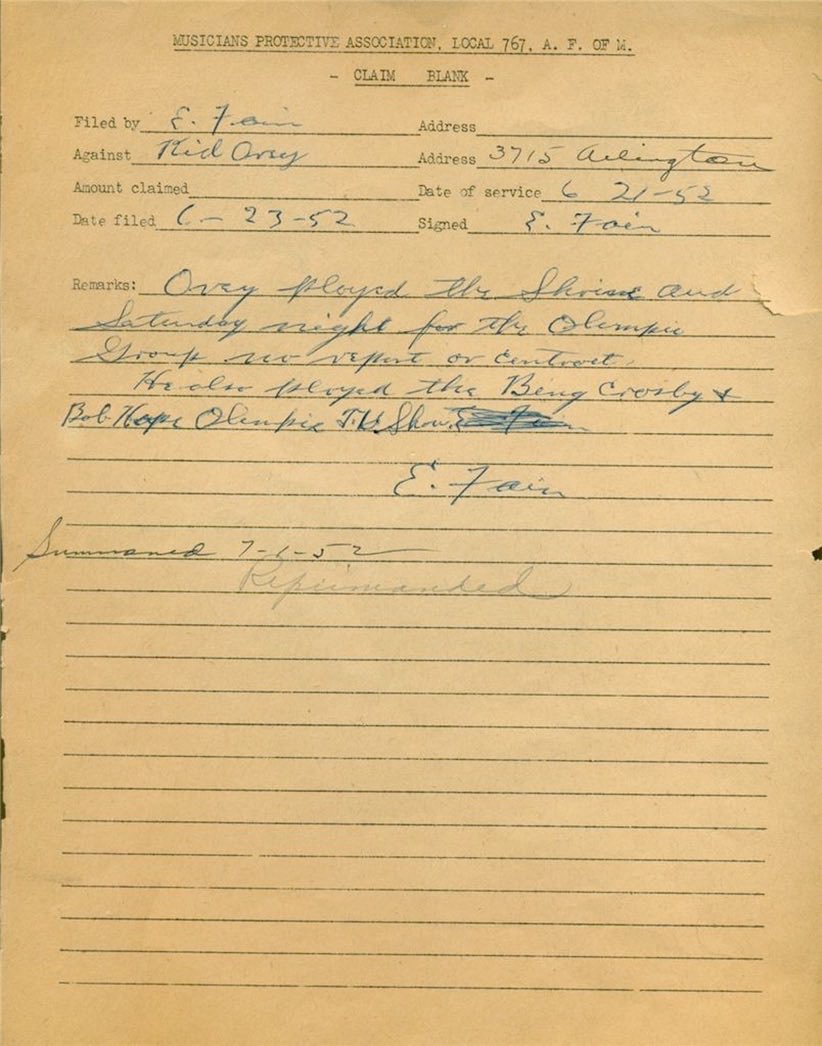 MUSICIANS PROTECTIVE ASSOCIATION, LOCAL 767, A. F. OF M.
- CLAIM BLANK -
Filed by E. Fain Address
Against Kid Orey Address 3715 Arlington
Amount claimed Date of service 6 21-52
Date filed 6-23-52 Signed E. Fain
Remarks: Orey played the Shrine and
Saturday night for the Olimpic
Group no report or contract.
He also played the Bing Crosby &
Bob Hope Olimpic T.V. Show.
E. Fain
Summoned 7-1-52
Reprimanded